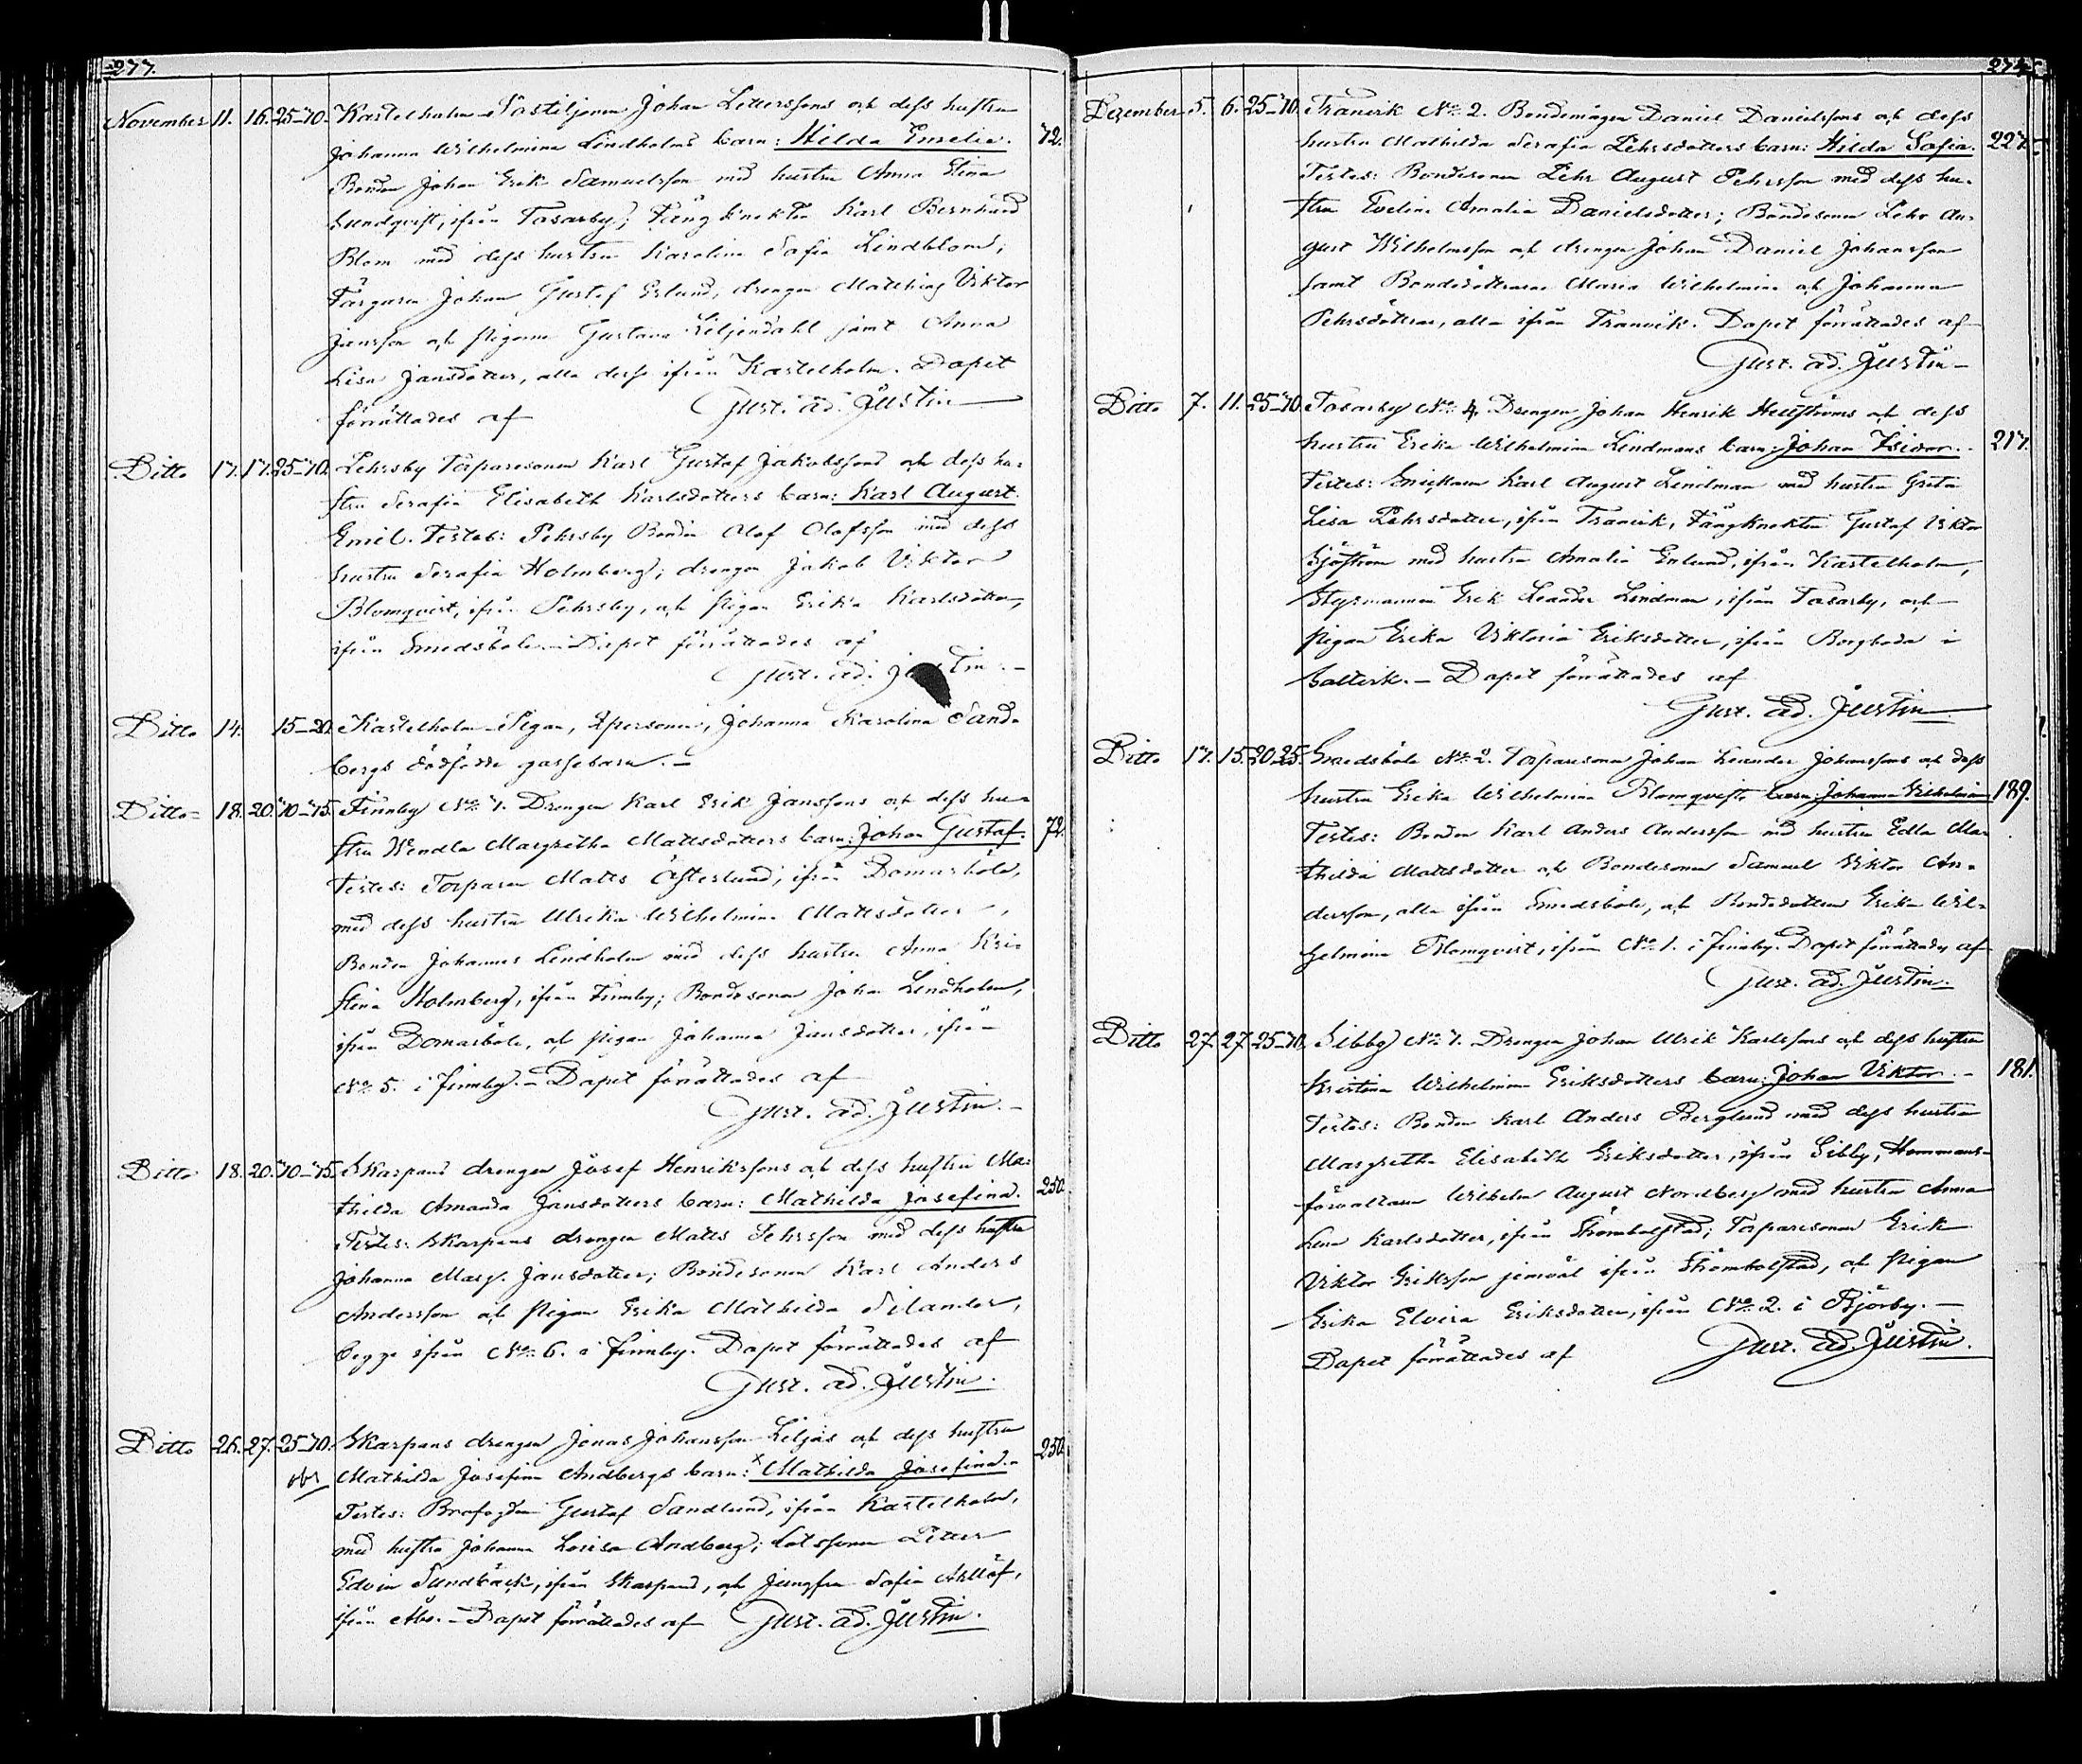 277.
November 11. 16. 25-30. Kastelholm Postiljonen Johan Petterssons och dess hustru
Johanna Wilhelmina Lindholms barn: Hilda Emelia. 72.
Bonden Johan Erik Samuelsson med hustru Anna Stina
Lundqvist, ifrån Tosarby; Fångknekten Karl Bernhard
Blom med dess hustru Karolina Sofia Lindblom;
Färgaren Johan Gustaf Erlund, drengen Matthias Viktor
Jansson och pigorna Gustava Liljendahl jämt Anna
Lisa Jansdotter, alla desse ifrån Kastelholm. Dopet
förrättades af Gust. Ad. Justin
Ditto 17. 17. 25-30. Pehrsby Torparesonen Karl Gustaf Jakobssons och dess hu-
stru Serafia Elisabeth Karlsdotters barn: Karl August
Emil. Testes: Pehrsby Bonden Olof Olofsson med dess
hustru Serafia Holmberg; drengen Jakob Viktor
Blomqvist, ifrån Pehrsby, och pigan Erika Karlsdotter,
ifrån Smedsböle. Dopet förrättades af
Gust. Ad. Justin.
Ditto 14. 15-20. Kastelholm Pigan, Johanna Karolina Sand-
bergs dödfödde gossebarn.
Ditto 18. 20. 30-35. Finnby No 7. Drengen Karl Erik Janssons och dess hu-
stru Wendla Margretha Mattsdotters barn: Johan Gustaf. 72.
Testes: Torparen Matts Österlund, ifrån Domarböle,
med dess hustru Ulrika Wilhelmina Mattsdotter,
Bonden Johannes Lindholm med dess hustru Anna Kri-
stina Holmberg, ifrån Finnby; Bondesonen Johan Lindholm,
ifrån Domarböle, och pigan Johanna Jansdotter, ifrån
No 5. i Finnby. Dopet förrättades af
Gust. Ad. Justin.
Ditto 18. 20. 30-35. Skarpans drengen Josef Henrikssons och dess hustru Ma-
thilda Amanda Jansdotters barn: Mathilda Josefina. 250.
Testes: Skarpans drengen Matts Pehrsson med dess hustru
Johanna Marg. Jansdotter; Bondesonen Karl Anders
Andersson och pigan Erika Mathilda Silander,
begge ifrån No 6. i Finnby. Dopet förrättades af
Gust. Ad. Justin.
Ditto 26. 27. 25-30. Skarpans drengen Jonas Johansson Liljas och dess hustru 250.
obs Mathilda Josefina Andbergs barn: x Mathilda Josefina.
Testes: Brofogden Gustaf Sandlund, ifrån Kastelholm,
med hustru Johanna Lovisa Andberg; Lotssonen Petter
Edvin Sundbäck, ifrån Skarpans, och Jungfru Sofia Ahllöf,
ifrån Åbo. Dopet förrättades af Gust. Ad. Justin.
Dezember 5. 6. 25-30. Tranvik No 2. Bondemågen Daniel Danielssons och dess
hustru Mathilda Serafia Pehrsdotters barn: Hilda Sofia. 227.
Testes: Bondesonen Pehr August Pehrsson med dess hu-
stru Evelina Amalia Danielsdotter; Bondesonen Pehr Au-
gust Wilhelmsson och drengen Johan Daniel Johansson
samt Bondedöttrarne Maria Wilhelmina och Johanna
Pehrsdöttrar, alla ifrån Tranvik. Dopet förrättades af
Gust. Ad. Justin
Ditto 7. 11. 25-30. Tosarby No 4. Drengen Johan Henrik Hellströms och dess
hustru Erika Wilhelmina Lindmans barn: Johan Isidor. 217.
Testes: Snickaren Karl August Lindman med hustru Greta
Lisa Pehrsdotter, ifrån Tranvik, Fångknekten Gustaf Viktor
Sjöström med hustru Amalia Enlund, ifrån Kastelholm,
Styrmannen Erik Leander Lindman, ifrån Tosarby, och
pigan Erika Viktoria Eriksdotter, ifrån Borgboda i
Saltvik. Dopet förrättades af
Gust. Ad. Justin
Ditto 17. 15. 20-25. Smedsböle No 2. Torparesonen Johan Leander Johanssons och dess
hustru Erika Wilhelmina Blomqvists barn: Johanna Wilhelmina 189.
Testes: Bonden Karl Anders Andersson med hustru Edla Ma-
thilda Mattsdotter och Bondesonen Samuel Viktor An-
dersson, alla ifrån Smedsböle, och Bondedottren Erika Wil-
helmina Blomqvist, ifrån No 1. i Finnby. Dopet förrättades af
Gust. Ad. Justin.
Ditto 27. 27. 25-30. Sibby No 7. Drengen Johan Ulrik Karlssons och dess hustru
Kristina Wilhelmina Eriksdotters barn: Johan Viktor. 181.
Testes: Bonden Karl Anders Berglund med dess hustru
Margretha Elisabeth Eriksdotter, ifrån Sibby, Hemmans-
förvaltaren Wilhelm August Nordberg med hustru Anna
Lena Karlsdotter, ifrån Strömbolstad; Torparesonen Erik
Viktor Eriksson jemväl ifrån Strömbolstad, och Pigan
Erika Elvira Eriksdotter, ifrån No 2. i Björby.
Dopet förrättades af Gust. Ad. Justin.